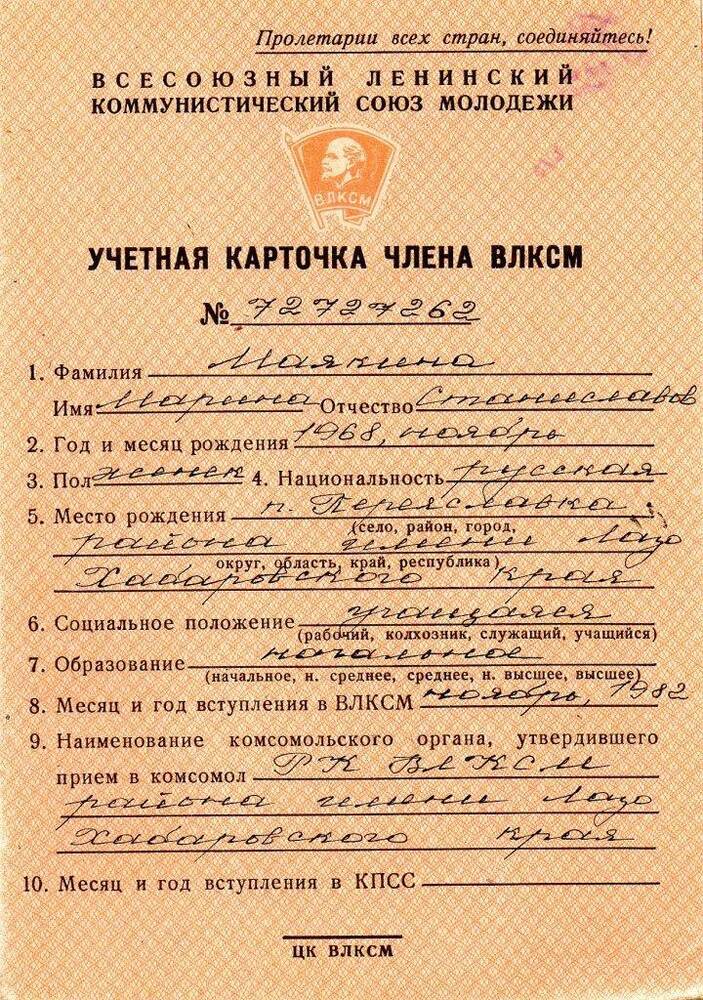 Пролетарии всех стран, соединяйтесь!
ВСЕСОЮЗНЫЙ ЛЕНИНСКИЙ
КОММУНИСТИЧЕСКИЙ СОЮЗ МОЛОДЕЖИ
ВЛКСМ
УЧЕТНАЯ КАРТОЧКА ЧЛЕНА ВЛКСМ
№ 72727262
1. Фамилия Маякина
Имя Марина Отчество Станиславов
2. Год и месяц рождения 1968, ноябрь
3. Пол женск 4. Национальность русская
5. Место рождения п. Переяславка
(село, район, город,
района имени Лазо
округ, область, край, республика)
Хабаровского края
6. Социальное положение учащаяся
(рабочий, колхозник, служащий, учащийся)
7. Образование начальное
(начальное, н. среднее, среднее, н. высшее, высшее)
8. Месяц и год вступления в ВЛКСМ ноябрь, 1982
9. Наименование комсомольского органа, утвердившего
прием в комсомол РК ВЛКСМ
района имени Лазо
Хабаровского края
10. Месяц и год вступления в КПСС
ЦК ВЛКСМ